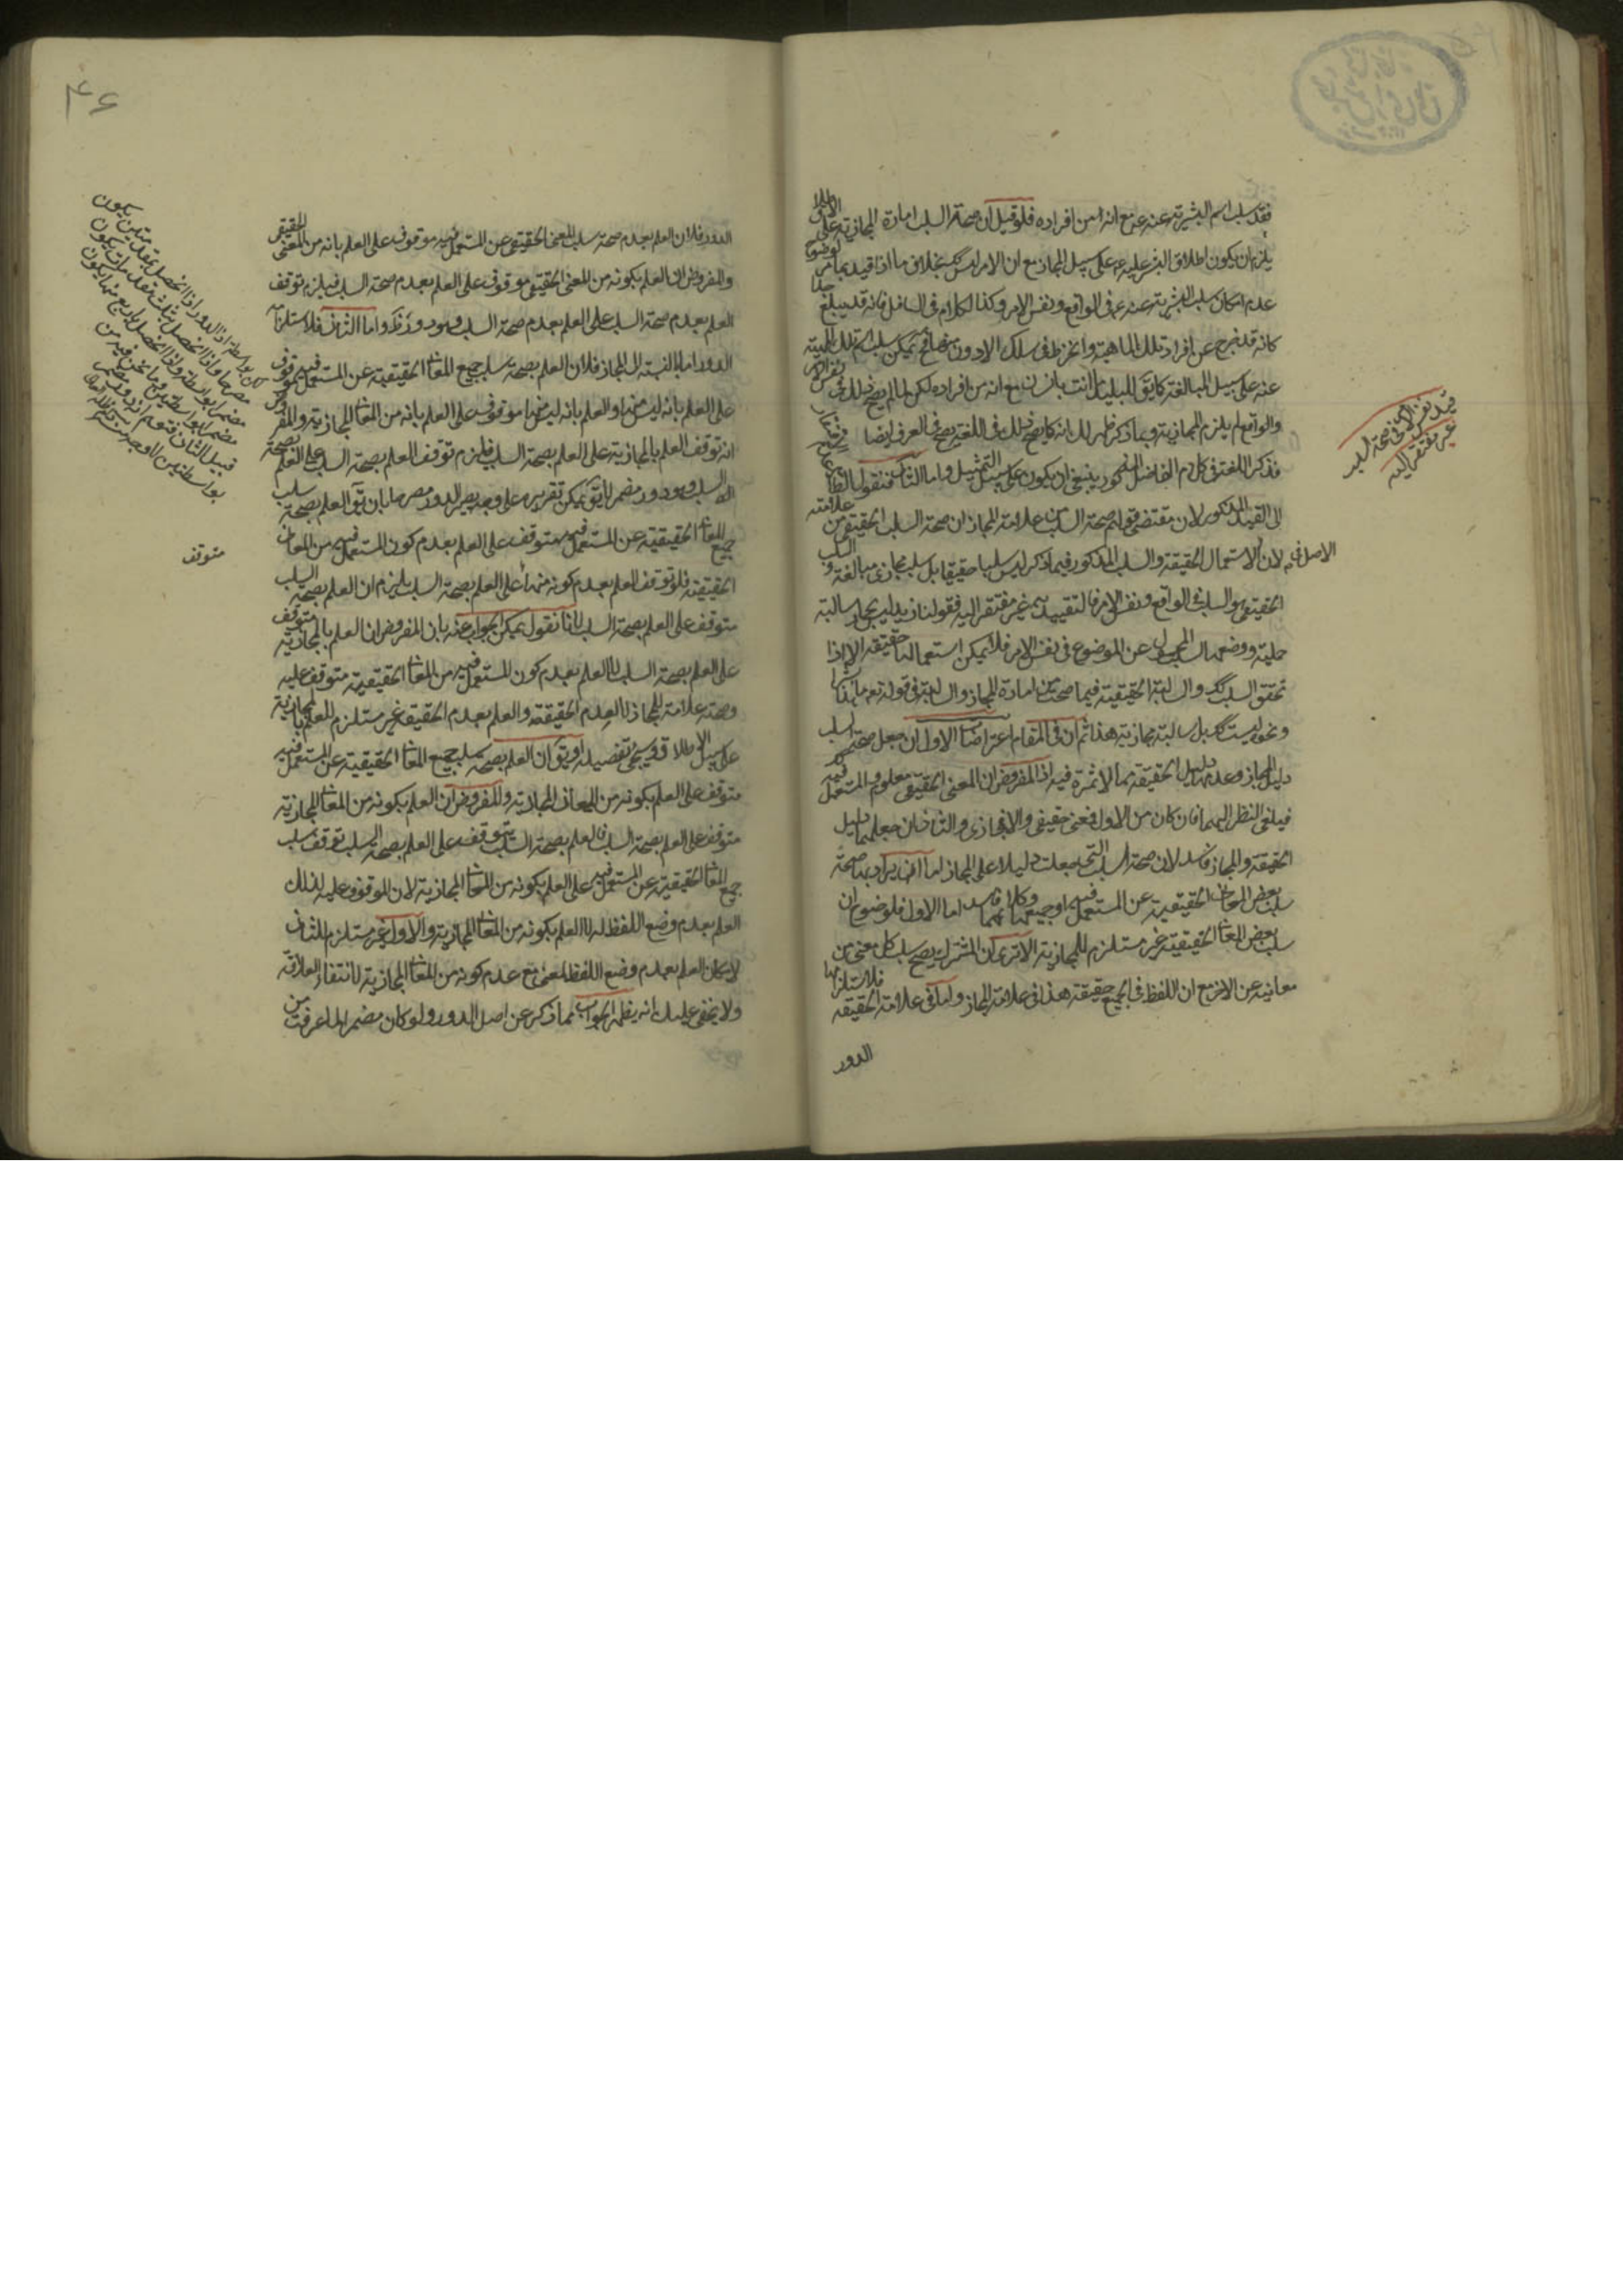 فقد سلب اسم البشرية عنه مع انه من افراده فلو قيل ان صحة السلب امارة المجازية على الاطلاق
يلزم ان يكون اطلاق البشر عليه على سبيل المجاز مع ان الامر ليس كك بخلاف ما اذا قيد بما مر لوضوح
عدم امكان سلب البشرية عنه في الواقع ونفس الامر وكذا الكلام في السافل فانه قد يبلغ حدا
كانه قد خرج عن افراد تلك الماهية وانخرط في سلك الادون منها فح يمكن سلب اسم تلك المهية
عنه على سبيل المبالغة كما يق للبليد انت بانسان مع انه من افراده لكن لما لم يصح ذلك في نفس الامر
والواقع لم يلزم المجازية وبما ذكر ظهر لك انه كما يصح ذلك في اللغة يصح في العرف ايضا
فذكر اللغة في كلام الفاضل المذكور ينبغي ان يكون على سبيل التمثيل واما الثالث فنقول
الى القيد المذكور لان مقتضى قولهم صحة السلب من علامة المجاز ان صحة السلب الحقيقي من علامته
لان الاصل في الاستعمال الحقيقة والسلب المذكور فيما ذكر ليس سلبا حقيقيا بل سلب مجازي مبالغة والسلب
الحقيقي هو السلب في الواقع ونفس الامر فالتقييد به غير مفتقر اليه فقولنا زيد ليس بحمار سالبة
حملية ووضعها لسلب المحمول عن الموضوع في نفس الامر فلا يمكن استعمالها حقيقة الا اذا
تحقق السلب كك والسالبة الحقيقية فيما صحت تكن امارة للمجاز والسالبة في قوله تعم ما هذا بشرا
ونحو ليست كك بل سالبة مجازية هذا ثم ان في المقام اعتراضات الاول ان جعل صحة السلب
دليل المجاز وعدمها دليل الحقيقة مما لا ثمرة فيه اذ المفروض ان المعنى الحقيقي معلوم والمستعمل فيه
فيلغى النظر اليهما فان كان من الاول فمعنى حقيقي والا فمجازي والثاني ان جعلهما دليل
الحقيقة والمجاز فاسد لان صحة السلب التي جعلت دليلا على المجاز اما ان يراد بها صحة
سلب بعض المعاني الحقيقية عن المستعمل فيه او جميعها وكلاهما فاسد اما الاول فلوضوح ان
سلب بعض المعاني الحقيقية غير مستلزم للمجازية الا ترى ان المشترك يصح سلب كل معنى من
معانيه عن الاخر مع ان اللفظ في الجميع حقيقة هذا في علامة المجاز واما في علامة الحقيقة فلاستلزامها
الدور
قيد نفس الامر في صحة السلب
غير مفتقر اليه
۴۶
الدور فلان العلم بعدم صحة سلب المعنى الحقيقي عن المستعمل فيه موقوف على العلم بانه من المعنى الحقيقي
والمفروض ان العلم بكونه من المعنى الحقيقي موقوف على العلم بعدم صحة السلب فيلزم توقف
العلم بعدم صحة السلب على العلم بعدم صحة السلب وهو دور واما الثاني فلاستلزامه
الدور اما بالنسبة الى المجاز فلان العلم بصحة سلب جميع المعاني الحقيقية عن المستعمل فيه موقوف
على العلم بانه ليس منها والعلم بانه ليس منها موقوف على العلم بانه من المعاني المجازية والمفروض
انه توقف العلم بالمجازية على العلم بصحة السلب فيلزم توقف العلم بصحة السلب على العلم بصحة
السلب وهو دور مضمر لا يق يمكن تقريره على وجه يصير الدور مصرحا بان يق العلم بصحة سلب
جميع المعاني الحقيقية عن المستعمل فيه متوقف على العلم بعدم كون المستعمل فيه من المعاني
الحقيقية فلو توقف العلم بعدم كونه منها على العلم بصحة السلب يلزم ان العلم بصحة السلب
متوقف على العلم بصحة السلب لانا نقول يمكن الجواب عنه بان المفروض ان العلم بالمجازية متوقف
على العلم بصحة السلب لا العلم بعدم كون المستعمل فيه من المعاني الحقيقية متوقف عليه
وصحته علامة للمجاز لا لعدم الحقيقة والعلم بعدم الحقيقة غير مستلزم للعلم بالمجازية
على سبيل الاطلاق وسيجئ تفصيله او يق ان العلم بصحة سلب جميع المعاني الحقيقية عن المستعمل فيه
متوقف على العلم بكونه من المعاني المجازية والمفروض ان العلم بكونه من المعاني المجازية
متوقف على العلم بصحة السلب فالعلم بصحة السلب يتوقف على العلم بصحة السلب توقف سلب
جميع المعاني الحقيقية عن المستعمل فيه على العلم بكونه من المعاني المجازية لان الموقوف عليه لذلك
العلم بعدم وضع اللفظ له لا العلم بكونه من المعاني المجازية والاول غير مستلزم للثاني
لامكان العلم بعدم وضع اللفظ لمعنى مع عدم كونه من المعاني المجازية لانتفاء العلاقة
ولا يخفى عليك انه يظهر الجواب مما ذكر عن اصل الدور ولو كان مضمرا لما عرفت من
اذ الدور اذا انحصل بمقدمتين يكون
مصرحا واذا انحصل بثلث مقدمات يكون
مضمرا بواسطة واذا انحصل باربع منها يكون
مضمرا بواسطتين وما نحن فيه من
قبيل الثاني
متوقف